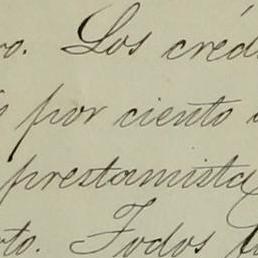 ro. Los créd
por ciento
prestamista
to. Todos